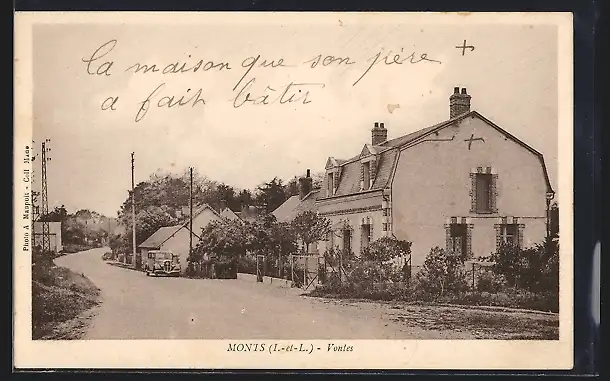 la maison que son père +
a fait bâtir
+
Photo A Maupuit - Coll Mame
MONTS (I.-et-L.) - Vontes